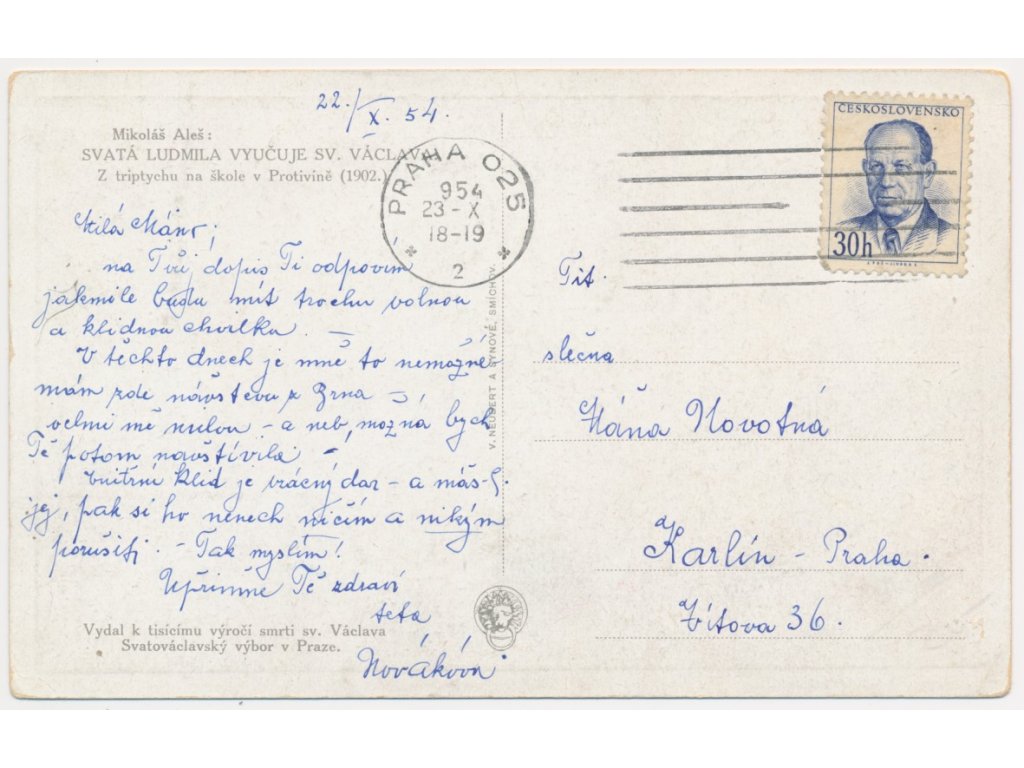 22./X. 54.
Mikoláš Aleš:
SVATÁ LUDMILA VYUČUJE SV. VÁCLAVA
Z triptychu na škole v Protivíně (1902.)
Milá Máňo,
na Tvůj dopis Ti odpovím
jakmile budu mít trochu volnou
a klidnou chvilku. —
V těchto dnech je mně to nemožné
mám zde návštěvu z Brna —
velmi mě milou — a neb, možná bych
Tě potom navštívila —
Vnitřní klid je vzácný dar — a máš-li
jej, pak si ho nenech ničím a nikým
porušiti. — Tak myslím!
Upřímně Tě zdraví
teta
Nováková
Vydal k tisícímu výročí smrti sv. Václava
Svatováclavský výbor v Praze.
V. NEUBERT A SYNOVÉ, SMÍCHOV.
PRAHA 025
954
23-X
18-19
2
ČESKOSLOVENSKO
30h
Tit.
slečna
Máňa Novotná
Karlín - Praha.
Vítova 36.